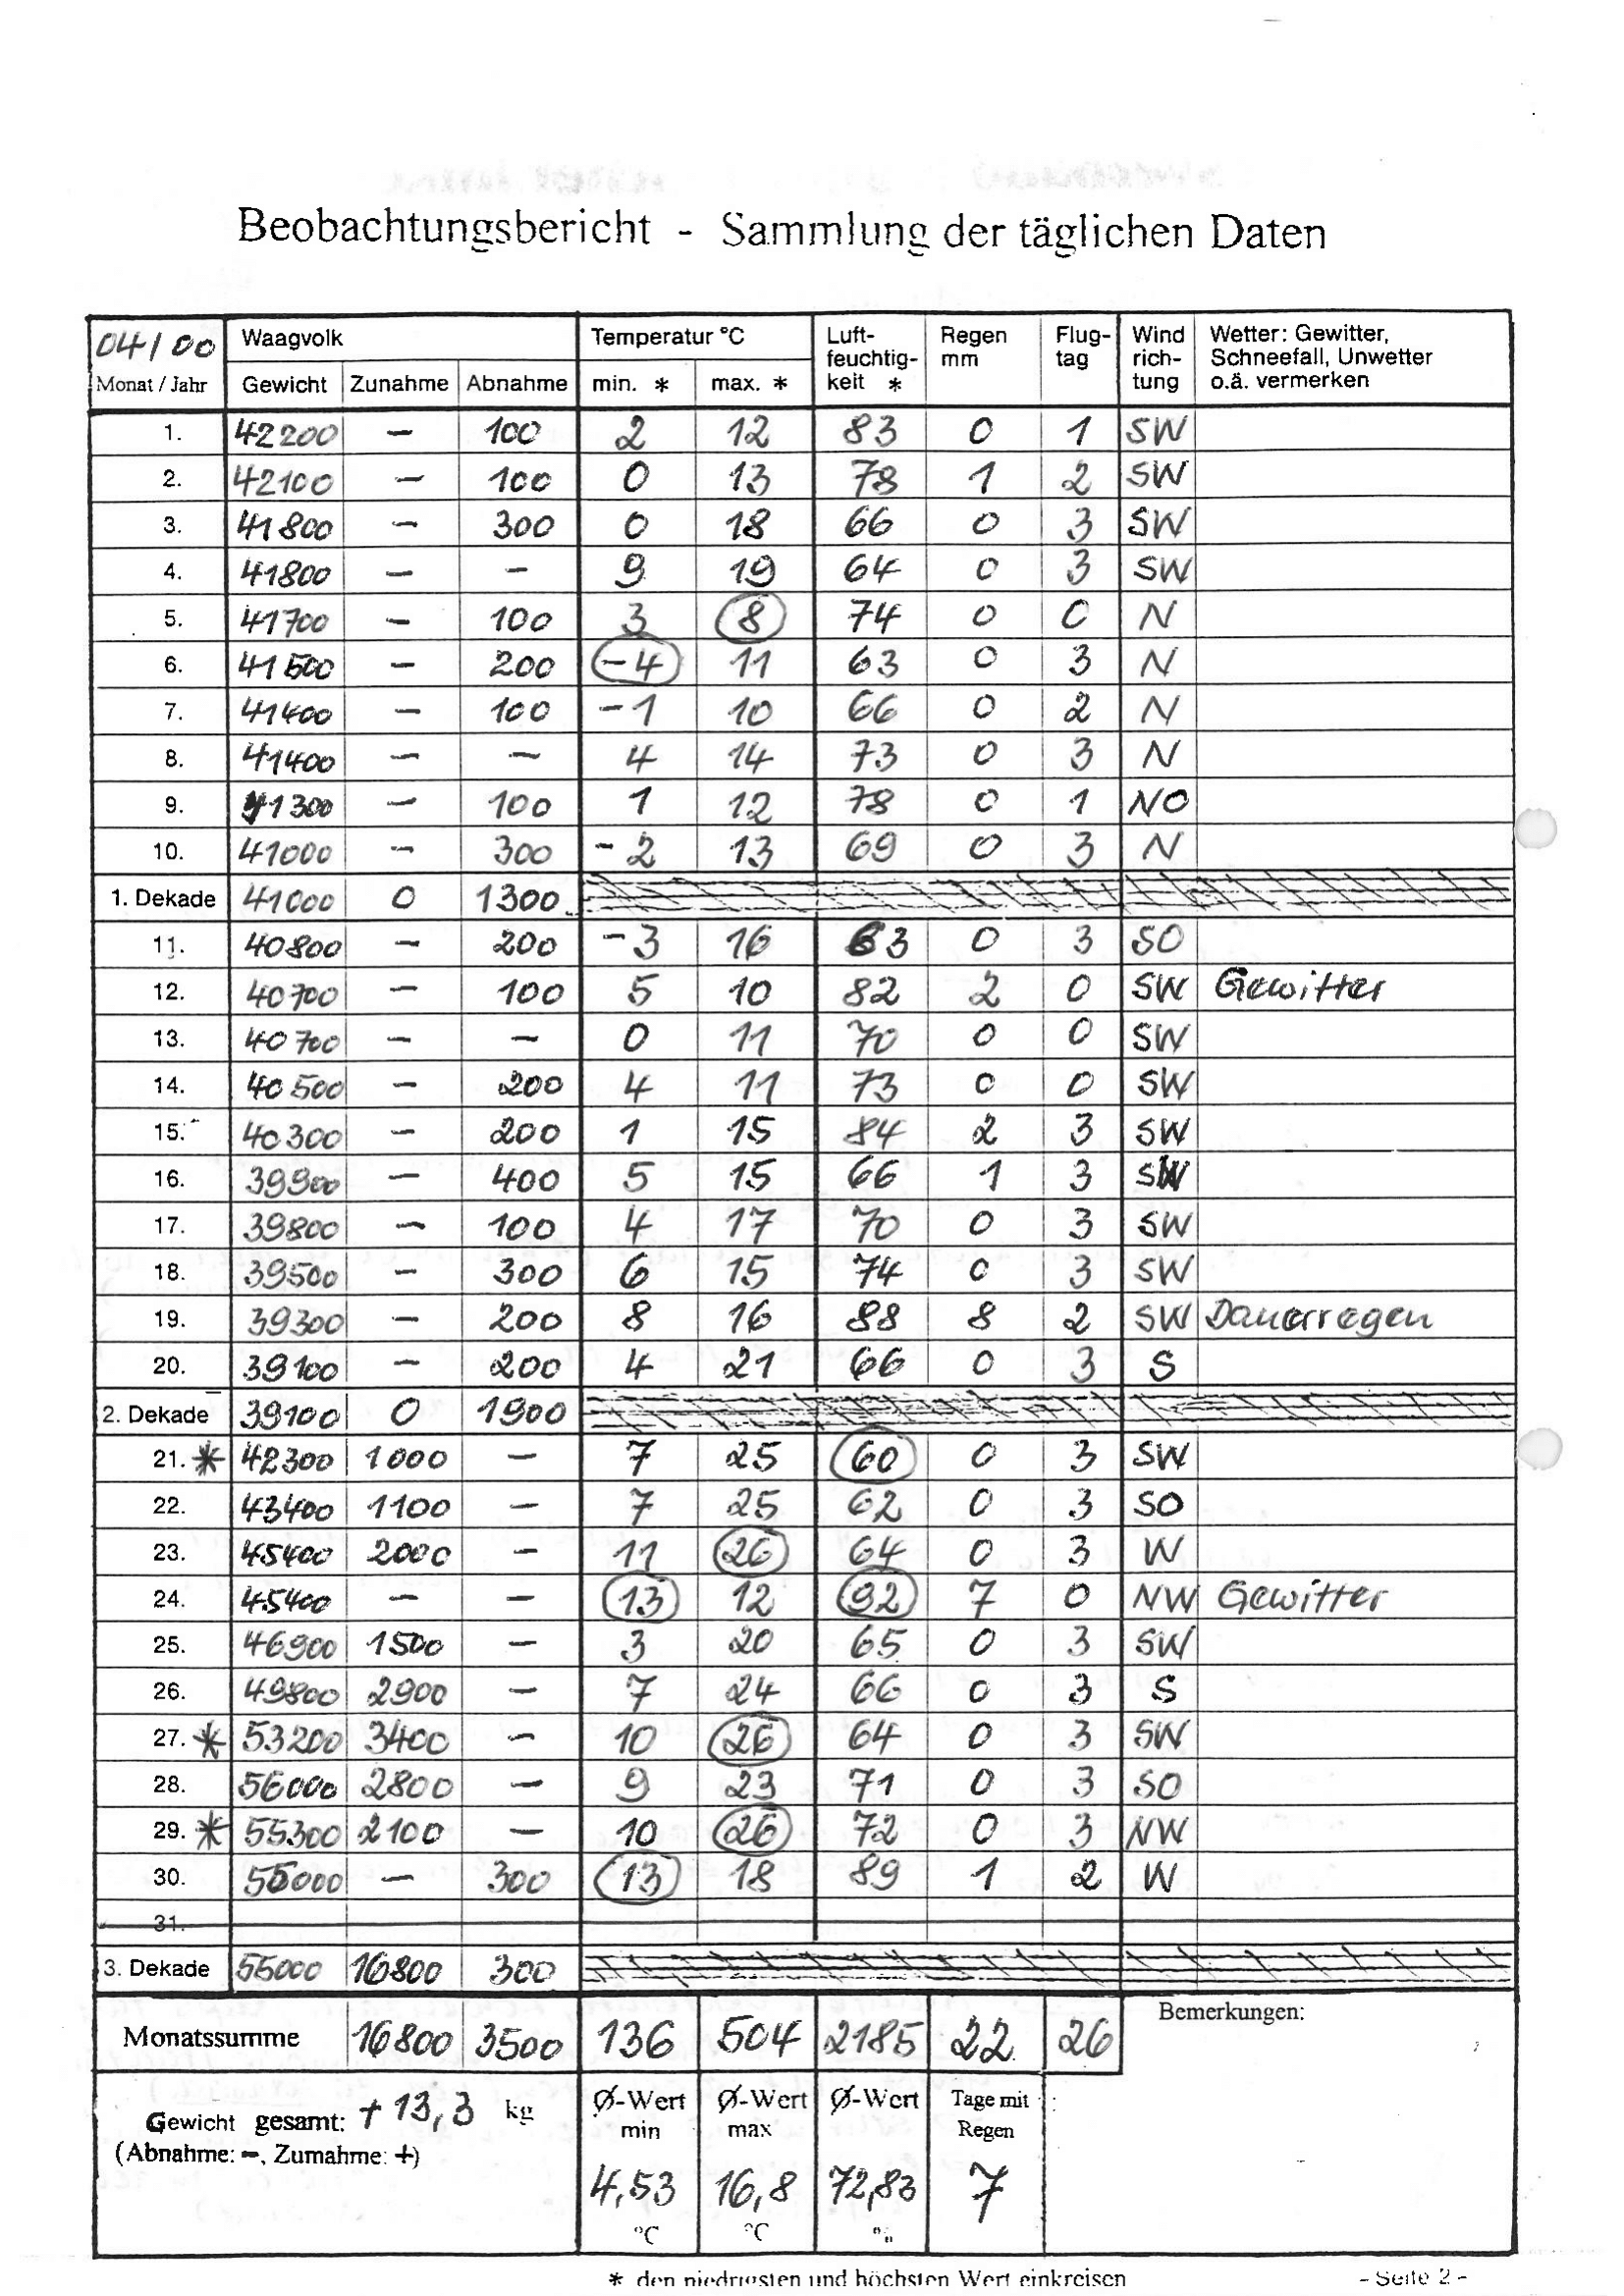 Beobachtungsbericht - Sammlung der täglichen Daten
04/00 Waagvolk Temperatur °C Luft- Regen Flug- Wind Wetter: Gewitter,
feuchtig- mm tag rich- Schneefall, Unwetter
Monat / Jahr Gewicht Zunahme Abnahme min. * max. * keit * tung o.ä. vermerken
1. 42200 – 100 2 12 83 0 1 SW
2. 42100 – 100 0 13 78 1 2 SW
3. 41800 – 300 0 18 66 0 3 SW
4. 41800 – – 9 19 64 0 3 SW
5. 41700 – 100 3 8 74 0 0 N
6. 41500 – 200 -4 11 63 0 3 N
7. 41400 – 100 -1 10 66 0 2 N
8. 41400 – – 4 14 73 0 3 N
9. 41300 – 100 1 12 78 0 1 NO
10. 41000 – 300 -2 13 69 0 3 N
1. Dekade 41000 0 1300
11. 40800 – 200 -3 16 63 0 3 SO
12. 40700 – 100 5 10 82 2 0 SW Gewitter
13. 40700 – – 0 11 70 0 0 SW
14. 40500 – 200 4 11 73 0 0 SW
15. 40300 – 200 1 15 84 2 3 SW
16. 39900 – 400 5 15 66 1 3 SW
17. 39800 – 100 4 17 70 0 3 SW
18. 39500 – 300 6 15 74 0 3 SW
19. 39300 – 200 8 16 88 8 2 SW Dauerregen
20. 39100 – 200 4 21 66 0 3 S
2. Dekade 39100 0 1900
21. * 42300 1000 – 7 25 60 0 3 SW
22. 43400 1100 – 7 25 62 0 3 SO
23. 45400 2000 – 11 26 64 0 3 W
24. 45400 – – 13 12 92 7 0 NW Gewitter
25. 46900 1500 – 3 20 65 0 3 SW
26. 49800 2900 – 7 24 66 0 3 S
27. * 53200 3400 – 10 26 64 0 3 SW
28. 56000 2800 – 9 23 71 0 3 SO
29. * 55300 2100 – 10 26 72 0 3 NW
30. 55000 – 300 13 18 89 1 2 W
31.
3. Dekade 55000 16800 300
Monatssumme 16800 3500 136 504 2185 22 26 Bemerkungen:
Gewicht gesamt: + 13,3 kg Ø-Wert Ø-Wert Ø-Wert Tage mit
(Abnahme: –, Zumahme: +) min max Regen
4,53 16,8 72,83 7
°C °C %
* den niedrigsten und höchsten Wert einkreisen - Seite 2 -